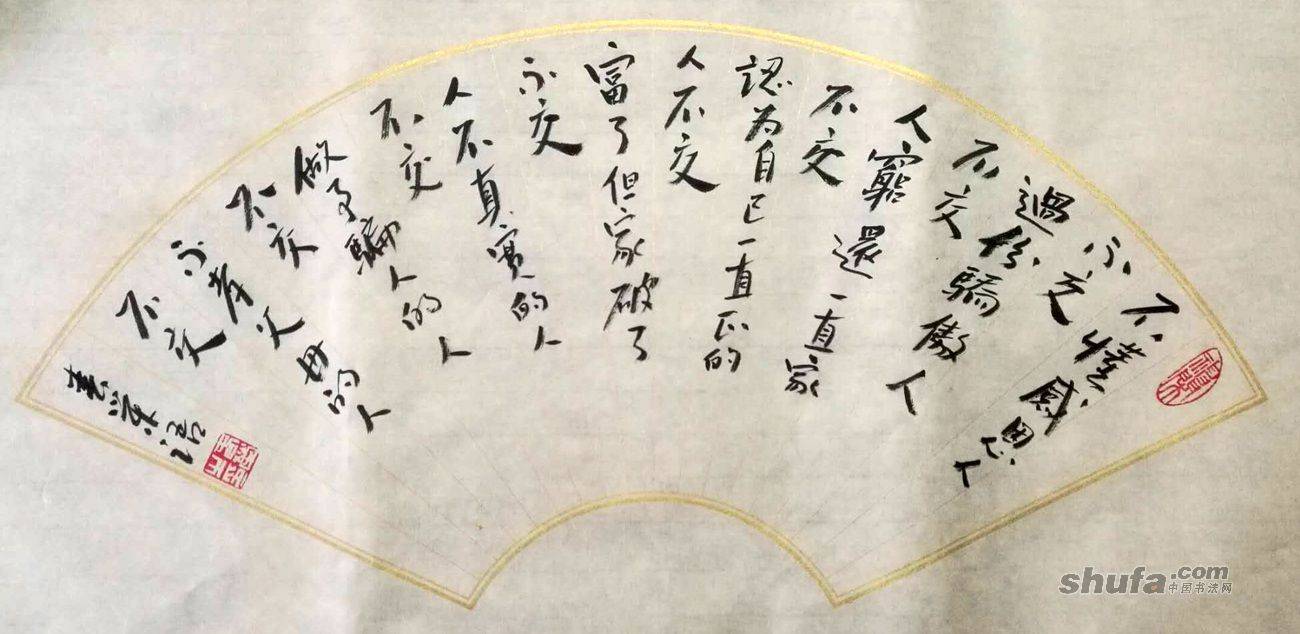 不懂感恩人
不交
過份驕傲人
不交
人窮還一直家
不交
認為自己一直正的
人不交
富了但家破了
不交
人不真實的人
不交
做事騙人的人
不交
不孝父母的人
不交
shufa.com
中国书法网